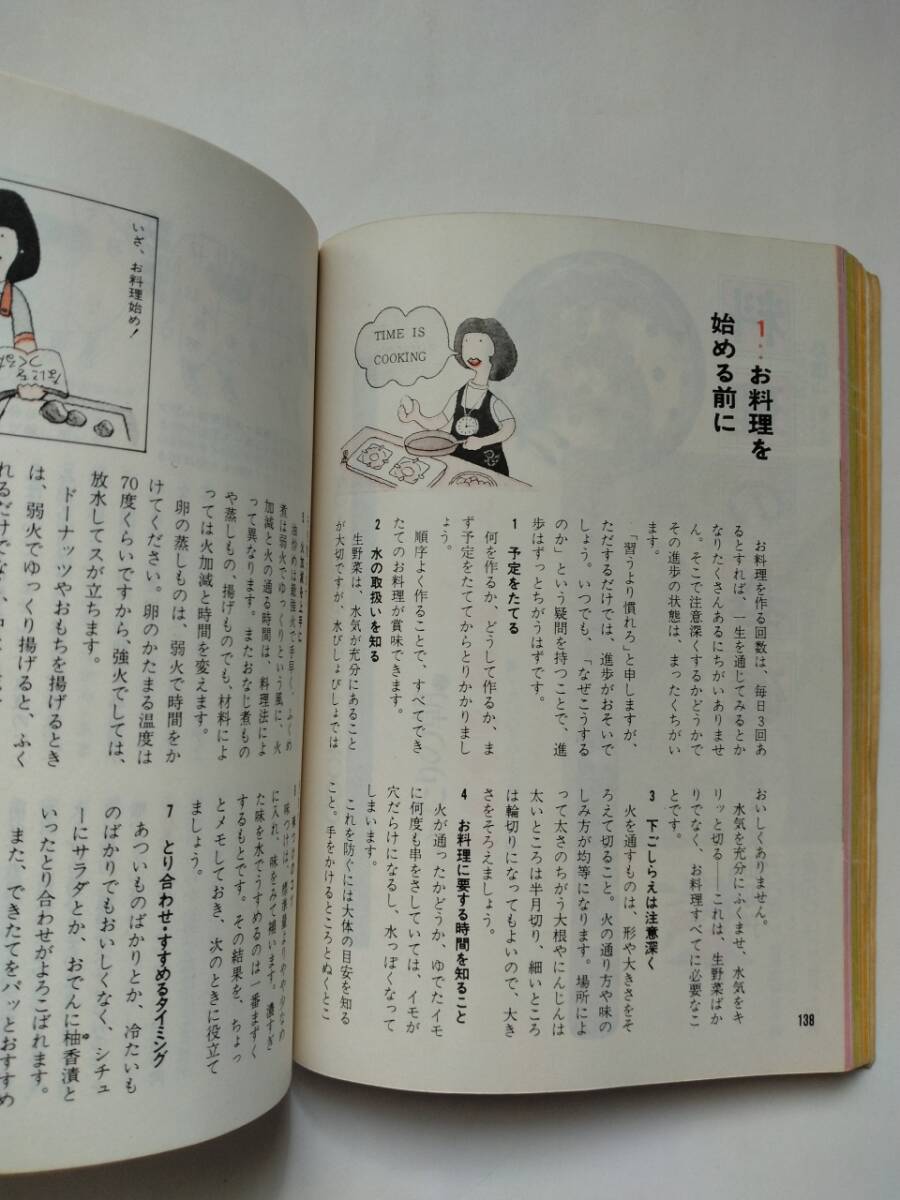 1・・お料理を
始める前に
TIME IS
COOKING
お料理を作る回数は、毎日3回あ
るとすれば、一生を通じてみるとか
なりたくさんあるにちがいありませ
ん。そこで注意深くするかどうかで
その進歩の状態は、まったくちがい
ます。
「習うより慣れろ」と申しますが、
ただするだけでは、進歩がおそいで
しょう。いつでも、「なぜこうする
のか」という疑問を持つことで、進
歩はずっとちがうはずです。
1 予定をたてる
何を作るか、どうして作るか、ま
ず予定をたててからとりかかりまし
ょう。
順序よく作ることで、すべてでき
たてのお料理が賞味できます。
2 水の取扱いを知る
生野菜は、水気が充分にあること
が大切ですが、水びしょびしょでは
おいしくありません。
水気を充分にふくませ、水気をキ
リッと切る——これは、生野菜ばか
りでなく、お料理すべてに必要なこ
とです。
3 下ごしらえは注意深く
火を通すものは、形や大きさをそ
ろえて切ること。火の通り方や味の
しみ方が均等になります。場所によ
って太さのちがう大根やにんじんは
太いところは半月切り、細いところ
は輪切りになってもよいので、大き
さをそろえましょう。
4 お料理に要する時間を知ること
火が通ったかどうか、ゆでたイモ
に何度も串をさしていては、イモが
穴だらけになるし、水っぽくなって
しまいます。
これを防ぐには大体の目安を知る
こと。手をかけるところとぬくとこ
138
いざ、お料理始め!
なにを
つくるか
火加減を上手に
油炒めは最強火で手早く、ふくめ
煮は弱火でゆっくりという風に、火
加減と火の通る時間は、料理法によ
って異なります。またおなじ煮もの
や蒸しもの、揚げものでも、材料によ
っては火加減と時間を変えます。
卵の蒸しものは、弱火で時間をか
けてください。卵のかたまる温度は
70度くらいですから、強火でしては、
放水してスが立ちます。
ドーナッツやおもちを揚げるとき
は、弱火でゆっくり揚げると、ふく
味つけは、標準量よりやや少なめ
に入れ、味をみて補います。濃すぎ
た味を水でうすめるのは一番まずく
するもとです。その結果を、ちょっ
とメモしておき、次のときに役立て
ましょう。
7 とり合わせ・すすめるタイミング
あついものばかりとか、冷たいも
のばかりでもおいしくなく、シチュ
ーにサラダとか、おでんに柚香漬と
いったとり合わせがよろこばれます。
また、できたてをパッとおすすめ